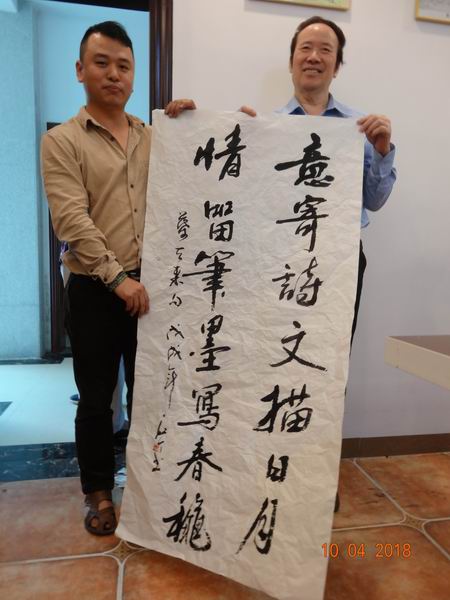 意寄詩文描日月
情留筆墨寫春穐
来句 戊戌年
10 04 2018